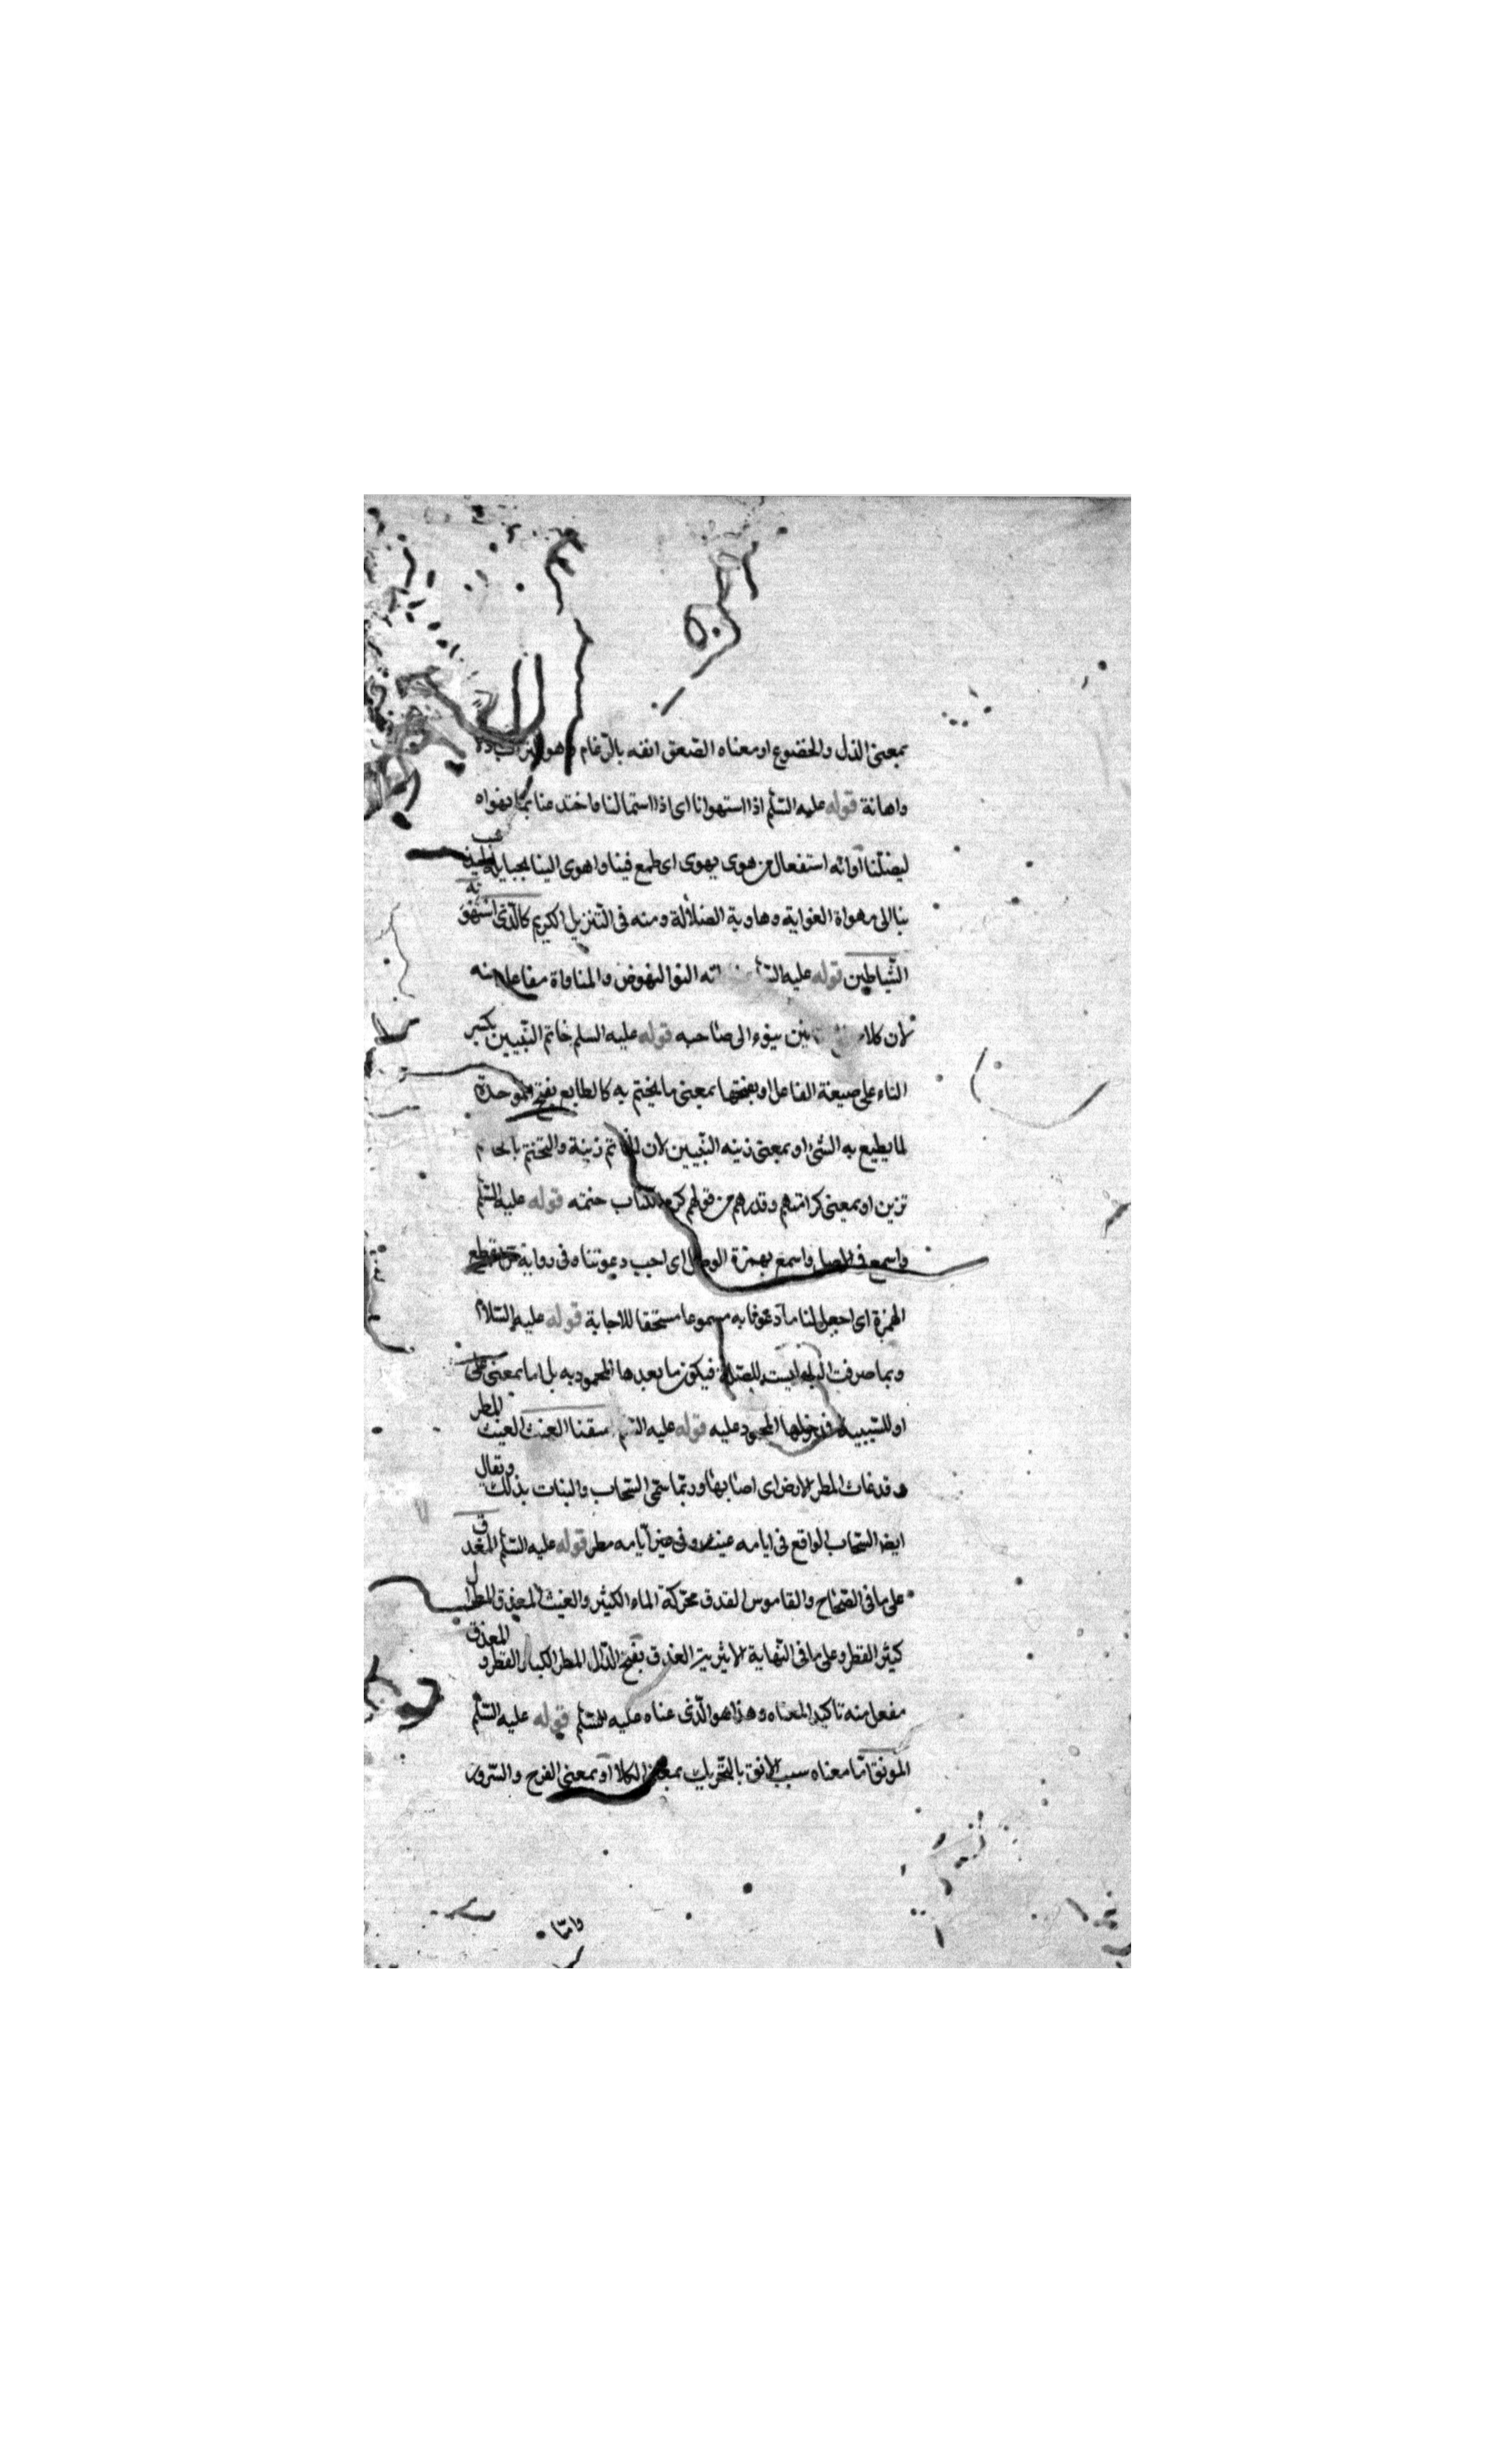 بمعنى الذل والخضوع او معناه الصعق انفه بالرّغام وهو التراب ذلا
واهانة قوله عليه السّلم اذا استهوانا اى اذا استمالنا واختدعنا بما نهواه
ليضلّنا او انه استفعال من هوى يهوى اى طمع فينا واهوى الينا بحبايله ليذهب
بنا الى مهواة الغواية وهاوية الضلالة ومنه فى التنزيل الكريم كالّذى استهوته
الشّياطين قوله عليه النوا النهوض والمناواة مفاعلة منه
لان كلا ينوء الى صاحبه قوله عليه السلم خاتم النّبيين بكسر
التاء على صيغة الفاعل او بفتحها بمعنى ما يختم به كالطابع بفتح الموحدة
لما يطبع به الشئ او بمعنى زينه النّبيين لان الخاتم زينة والتختم
تزين او بمعنى كرامتهم وقدرهم من قولهم كرم الكتاب ختمه قوله عليه السّلم
واسمع واسمع بهمزة الوصل اى اجب دعوتنا وفى رواية بقطع
الهمزة اى اجعل لنا ما دعونا به مسموعا مستحقا للاجابة قوله عليه السّلام
وبما صرفت الباء ليست للصلة فيكون ما بعدها المحمود به بل اما بمعنى على
او للسّببيه فمدخولها المحمود عليه قوله عليه اسقنا الغيث الغيث المطر
وقد غاث المطر الارض اى اصابها وربّما سمّى السّحاب والنبات بذلك ويقال
ايضا السّحاب الواقع فى ايامه غيث وفى غير أيامه مطر قوله عليه السّلم المغدق
على ما فى الصّحاح والقاموس الغدق محرّكة الماء الكثير والغيث المغدق المطر
كثير القطر وعلى ما فى النّهاية الاثيريّة الغدق بفتح الدّال المطر الكبار القطر والمغدق
مفعل منه تاكيد المعناه وهذا هو الّذى عناه عليه السّلم قوله عليه السّلم
المونق امّا معناه سبب الانق بالتّحريك بمعنى الكلا او بمعنى الفرح والسّرور
وامّا